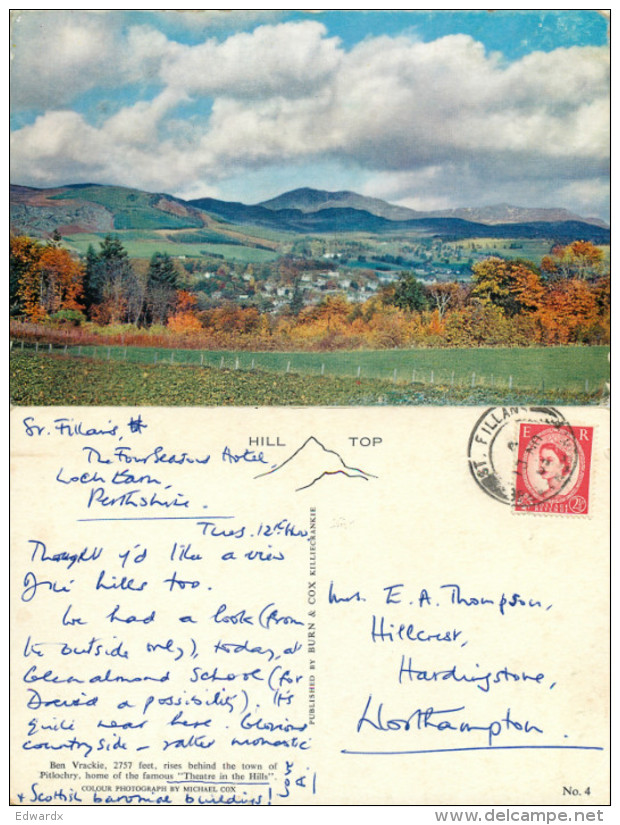 St. Fillans,
The Four Seasons Hotel,
Loch Earn,
Perthshire.
Tues. 12th Nov
Thought y'd like a view
of the hills too.
We had a look (from
the outside only), today, at
Glenalmond School (for
David a possibility). It's
quite near here. Glorious
countryside – rather monastic
+ Scottish baronial buildings!
HILL TOP
PUBLISHED BY BURN & COX KILLIECRANKIE
ST. FILLANS
E R
2½
Mrs. E. A. Thompson,
Hillcrest,
Hardingstone,
Northampton.
Ben Vrackie, 2757 feet, rises behind the town of
Pitlochry, home of the famous "Theatre in the Hills".
COLOUR PHOTOGRAPH BY MICHAEL COX
No. 4
Edwardx
www.delcampe.net